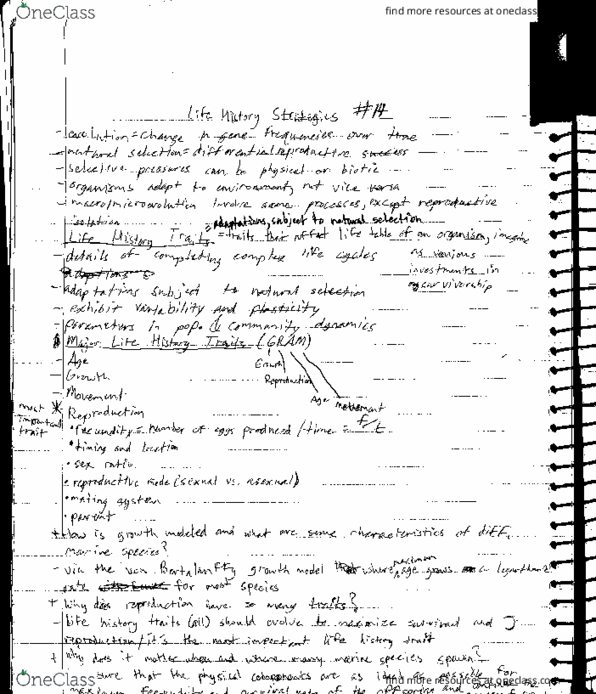 OneClass
find more resources at oneclass
Life History Strategies #14
- evolution = change in gene frequencies over time
- natural selection = differential reproductive success
- selective pressures can be physical or biotic
- organisms adapt to environment, not vice versa
- macro/microevolution involve same processes, except reproductive
isolation
adaptations, subject to natural selection
Life History Traits = traits that affect life table of an organism, imagine
- details of completing complex life cycles
as various
investments in
survivorship
- adaptations subject to natural selection
- exhibit variability and plasticity
- parameters in pop. & community dynamics
Major Life History Traits (GRAM)
- Age
Growth
- Growth
Reproduction
- Movement
Age movement
most important trait
* Reproduction
• fecundity = number of eggs produced / time = f/t
• timing and location
• sex ratio
• reproductive mode (sexual vs. asexual)
• mating system
• parent
+ How is growth modeled and what are some characteristics of diff.
marine species?
- via the von Bertalanffy growth model where age grows
for most species
+ Why does reproduction have so many traits?
- life history traits (all) should evolve to maximize survival and
reproduction/it's the most important life history trait
+ Why does it matter when and where many marine species spawn?
sure that the physical components are as ideal as possible for
OneClass
find more resources at oneclass.co